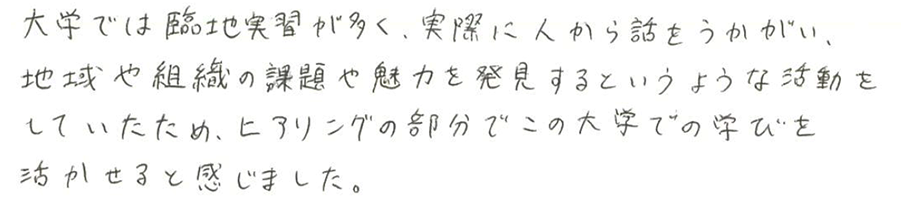 大学では臨地実習が多く、実際に人から話をうかがい、
地域や組織の課題や魅力を発見するというような活動を
していたため、ヒアリングの部分でこの大学での学びを
活かせると感じました。